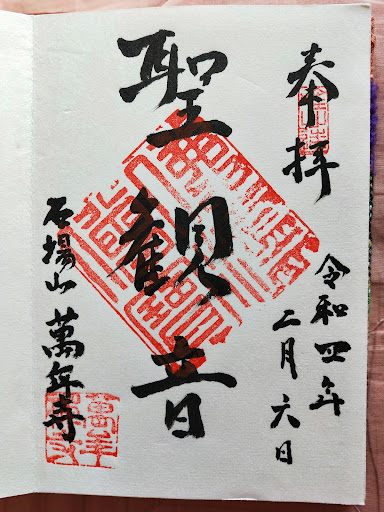 奉拝
令和四年
二月六日
聖観音
石場山 萬年寺